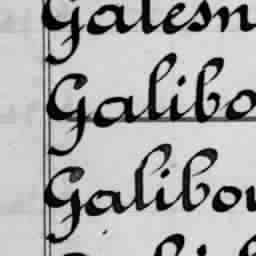 Galesn
Galibo
Galibou